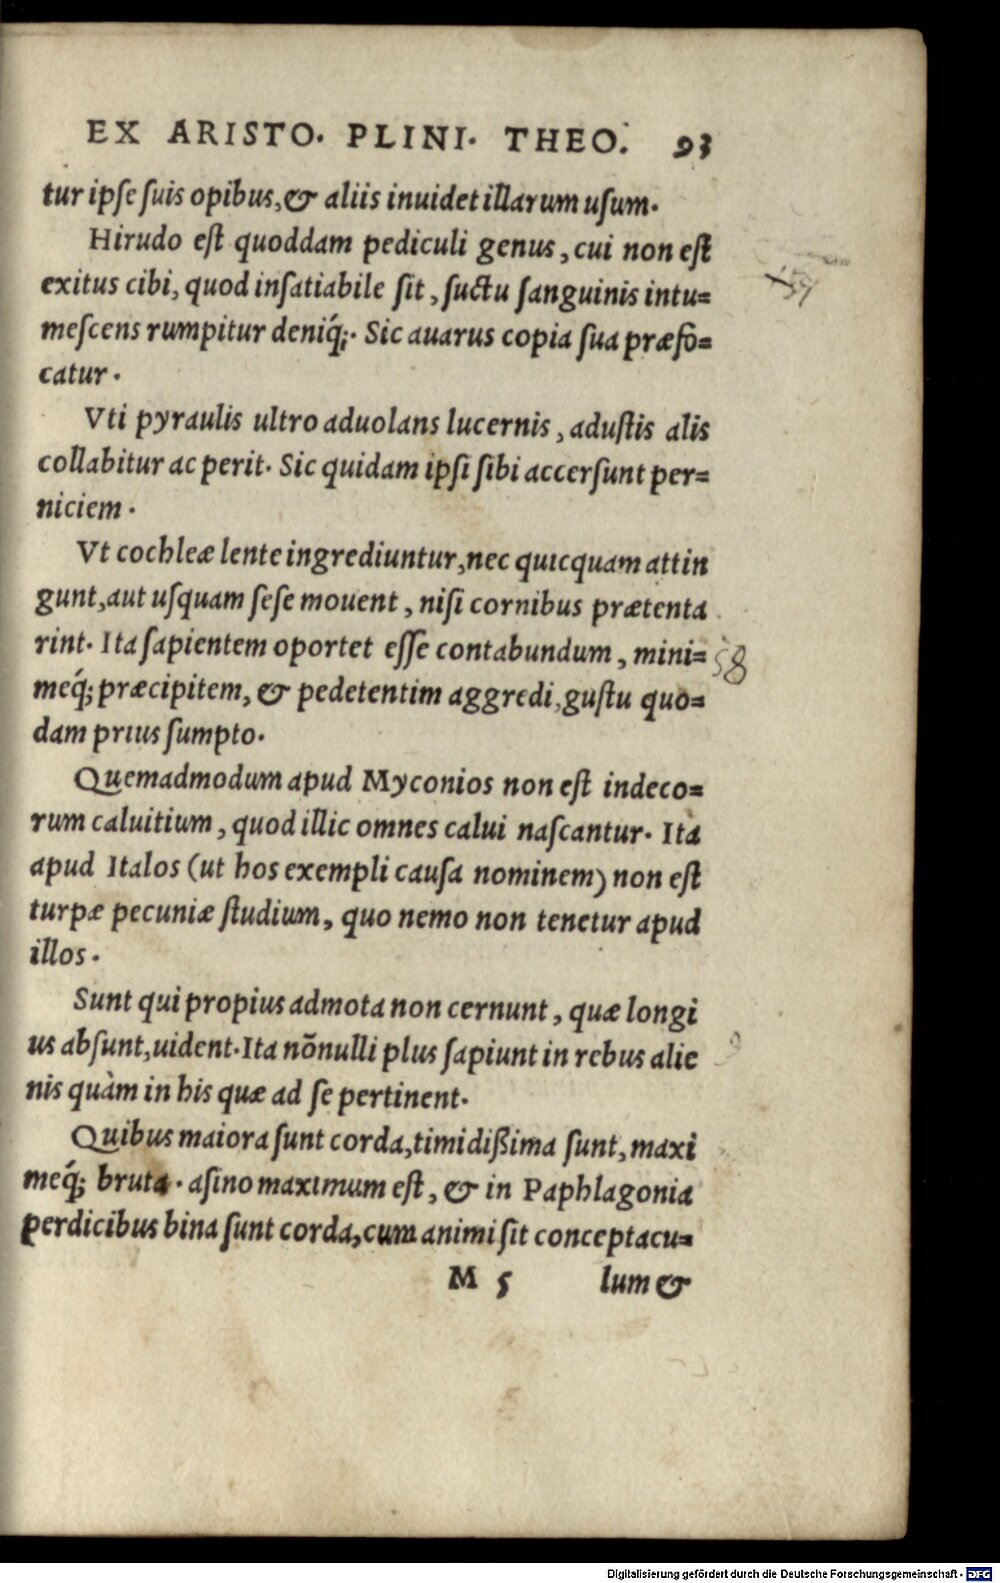 EX ARISTO. PLINI. THEO. 93
tur ipſe ſuis opibus, & aliis inuidet illarum uſum.
Hirudo eſt quoddam pediculi genus, cui non eſt
exitus cibi, quod inſatiabile ſit, ſuctu ſanguinis intu=
meſcens rumpitur deniq́;. Sic auarus copia ſua præfo=
catur.
Vti pyraulis ultro aduolans lucernis, aduſtis alis
collabitur ac perit. Sic quidam ipſi ſibi accerſunt per=
niciem.
Vt cochleæ lente ingrediuntur, nec quicquam attin
gunt, aut uſquam ſeſe mouent, niſi cornibus prætenta
rint. Ita ſapientem oportet eſſe contabundum, mini=
meq́; præcipitem, & pedetentim aggredi, guſtu quo=
dam prius ſumpto.
58
Quemadmodum apud Myconios non eſt indeco=
rum caluitium, quod illic omnes calui naſcantur. Ita
apud Italos (ut hos exempli cauſa nominem) non eſt
turpæ pecuniæ ſtudium, quo nemo non tenetur apud
illos.
Sunt qui propius admota non cernunt, quæ longi
us abſunt, uident. Ita nõnulli plus ſapiunt in rebus alie
nis quàm in his quæ ad ſe pertinent.
Quibus maiora ſunt corda, timidißima ſunt, maxi
meq́; bruta. aſino maximum eſt, & in Paphlagonia
perdicibus bina ſunt corda, cum animi ſit conceptacu=
M 5 lum &
Digitalisierung gefördert durch die Deutsche Forschungsgemeinschaft - DFG